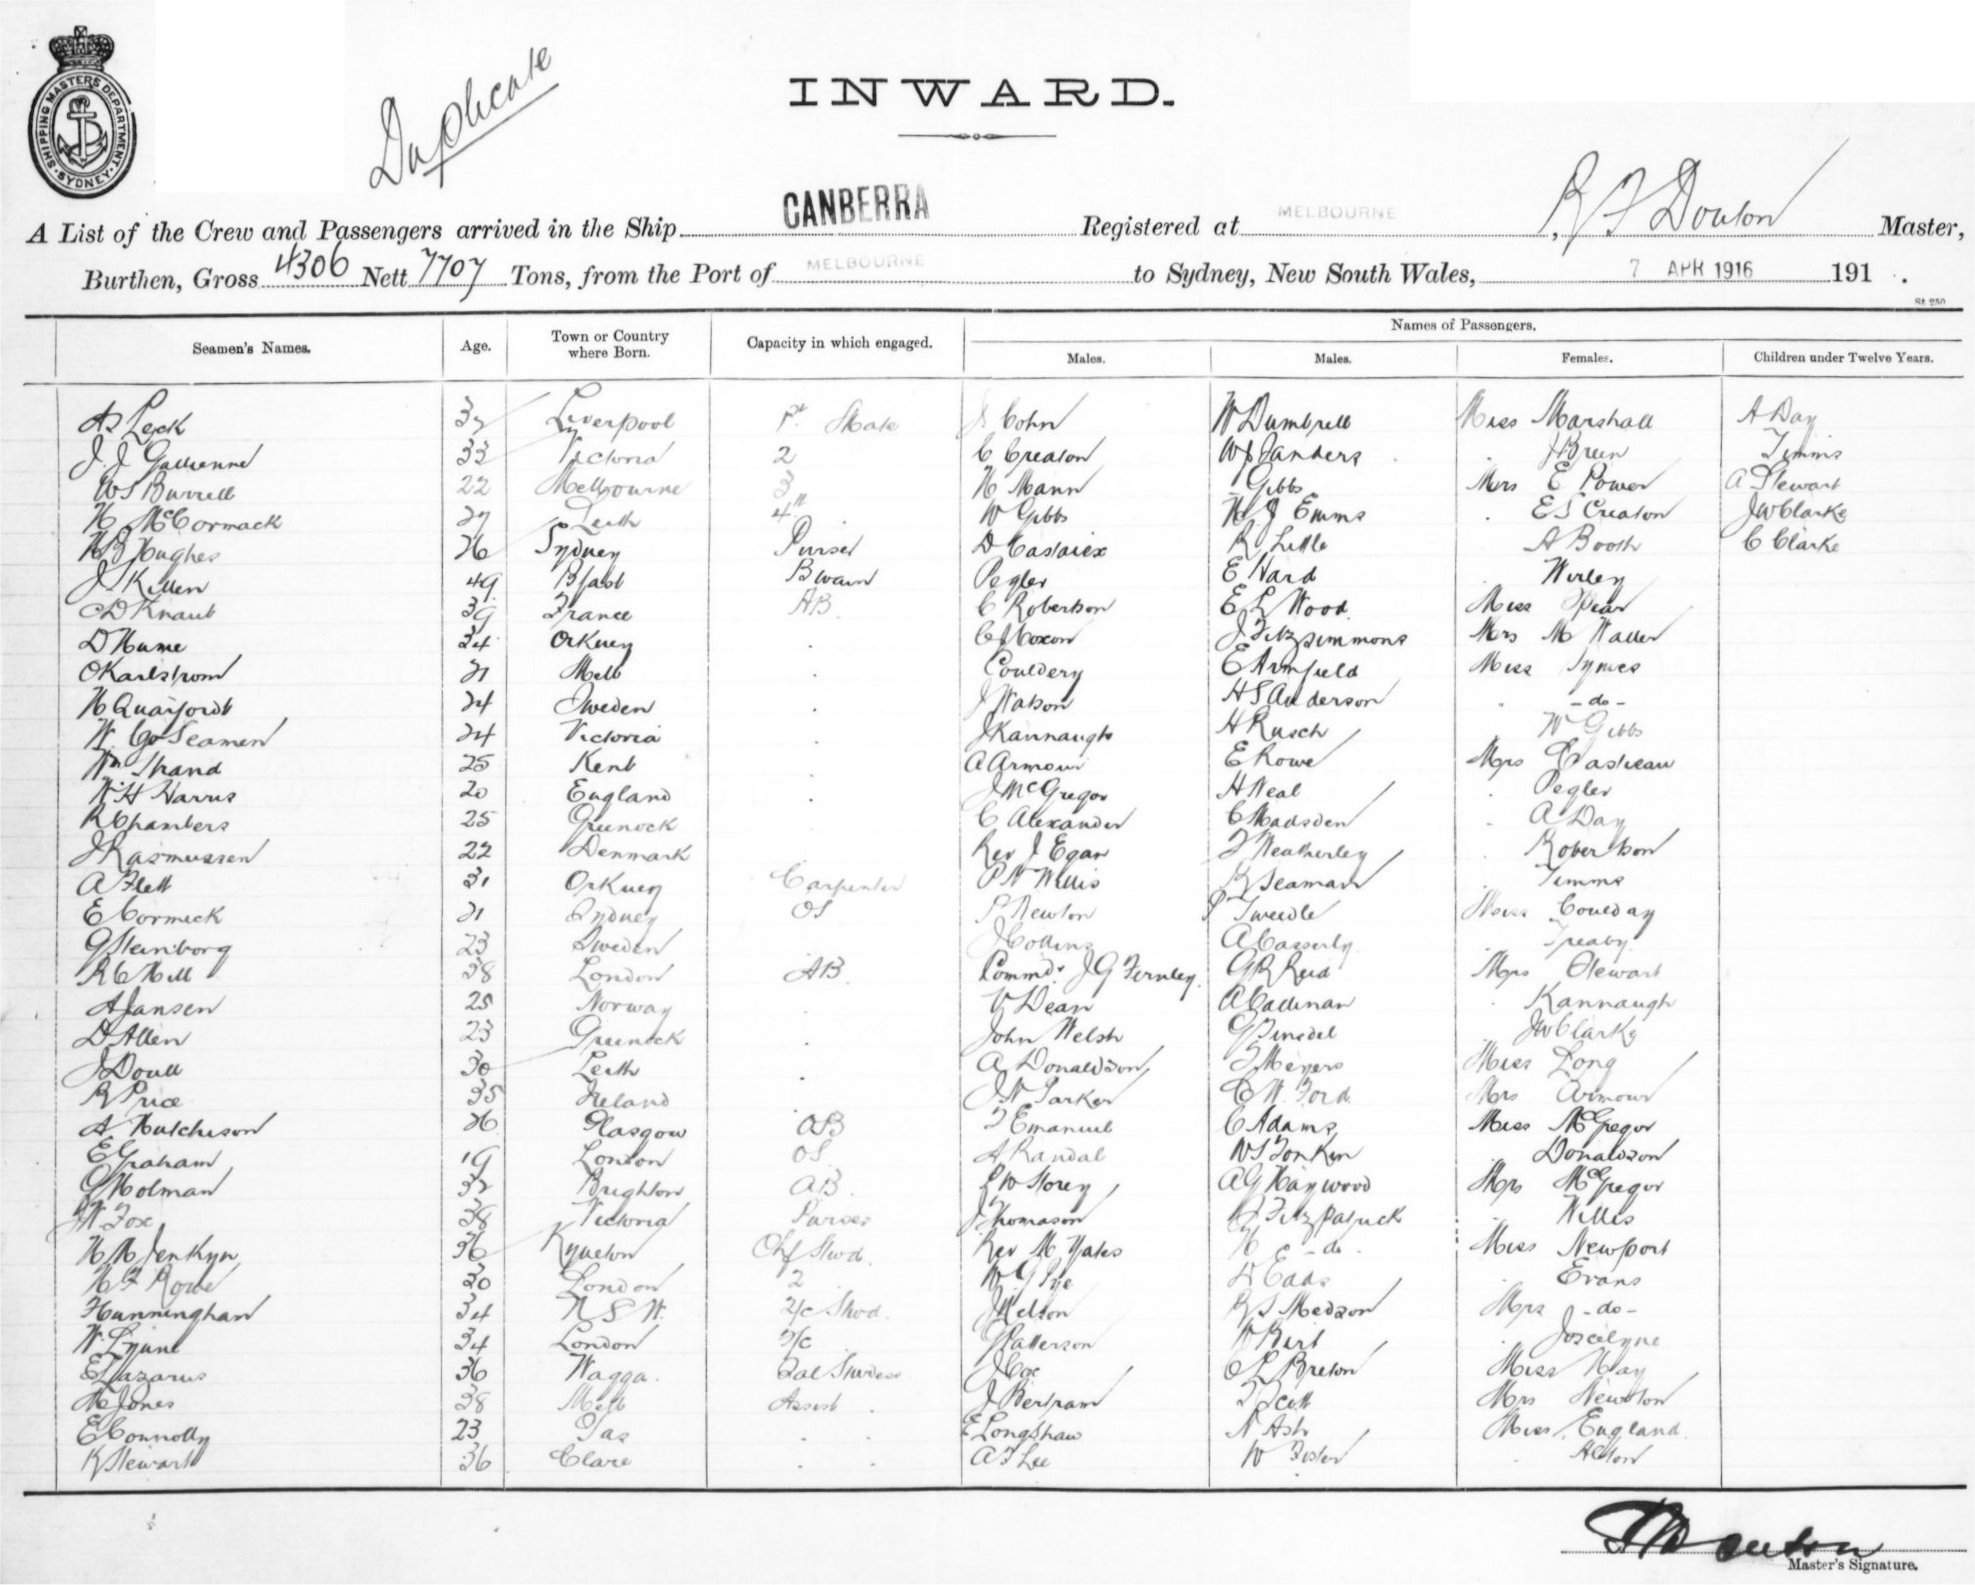 SHIPPING MASTERS DEPARTMENT. SYDNEY.
Duplicate
INWARD.
A List of the Crew and Passengers arrived in the Ship CANBERRA Registered at MELBOURNE, R F Douton Master,
Burthen, Gross 4306 Nett 7707 Tons, from the Port of MELBOURNE to Sydney, New South Wales, 7 APR 1916 191 .
St 250
Names of Passengers.
Seamen's Names. Age. Town or Country where Born. Capacity in which engaged. Males. Males. Females. Children under Twelve Years.
Leck 37 Liverpool Mate J Cohn W Dumbrell Miss Marshall A Day
J. J Gallienne 33 Victoria 2 C Creaton Sanders J Breen Timms
W S Burrell 22 Melbourne 3 H Mann Gibbs Mrs E Power A Stewart
H McCormack 27 Leith 4th W Gibbs H J Emms E S Creaton J W Clarke
H B Hughes 26 Sydney Purser D R Little A Booth C Clarke
J Killen 49 Bfast Bswain Pegler E Nard Wirley
C D Knaut 39 France AB. C Robertson E L Wood Miss Spear
D Hume 34 Orkney . C J Coxon J Fitzsimmons Mrs M Waller
O Karlstrom 21 Melb . Couldery E Armfield Miss Symes
H Quaifordt 24 Sweden . J Watson H S Anderson " -do-
W. Go Seamen 24 Victoria . J Kannaugh H Rusch W Gibbs
Wm Strand 25 Kent . A Armour E Rowe Mrs Casteau
W H Harris 20 England . J McGregor H Neal . Pegler
R Chambers 25 Greenock C Alexander C Madsden . A Day
J Rasmussen 22 Denmark Rev J Egan F Weatherley . Robertson
A Flett 31 Orkney Carpenter P N Willis R Seaman . Timms
E Cormick 21 Sydney OS S Newton Tweedle Miss Coulday
G Steinborg 23 Sweden J Collins A Casserly . Treaby
R C Hill 38 London AB. Commdr J G Fernley. G R Reid Mrs Stewart
A Jansen 25 Norway . V Dean A Callinan . Kannaugh
D Allen 23 Greenock . John Welsh G Tinsdel J W Clarke
J Doull 30 Leith . A Donaldson F Meyers Miss Long
R Price 35 Ireland . J N Parker C W. Ford. Mrs Armour
A Hutchison 26 Glasgow AB F Emanuel C Adams Miss McGregor
E Graham 19 London OS A Randal W S Tonkin . Donaldson
G Holman 32 Brighton AB. L W Storey A G Haywood Mrs McGregor
J W Fox 38 Victoria Purser J Thomason Fitzpatrick . Willis
H M Jenkyn 36 Kyneton Chf Stwd. Rev M Yates -do- Miss Newport
H F Rowe 30 London 2 W G Pye D Eads . Evans
Hunningham 34 N S W. 2/c Stwd. J Nelson R S Medson Mrs -do-
W. Lynne 34 London 3/c J Patterson W Birt . Joscelyne
E Lazarus 36 Wagga. J Cox O L Breton Miss Hay
M Jones 38 Melb Assist . J Bertram T Scott Mrs Newton
E Connolly 23 Tas . . E Longshaw N Ash Miss England
R Stewart 36 Clare . . A F Lee W Foster . Acton
Master's Signature.